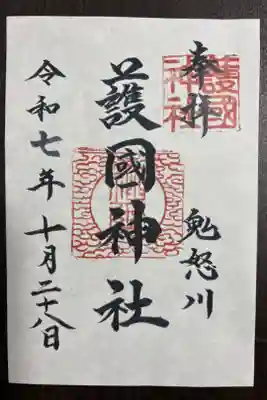 奉拝
鬼怒川
護國神社
令和七年十月二十八日
護國神社